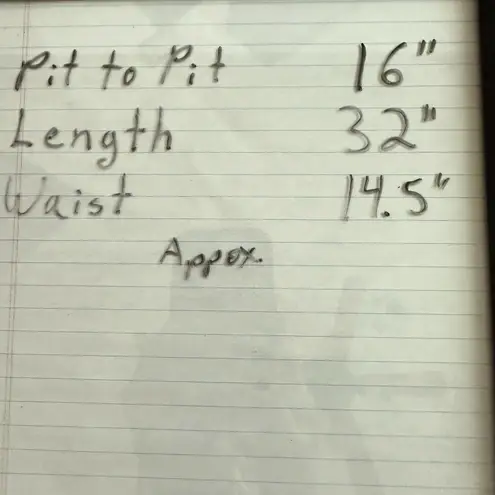 Pit to Pit 16"
Length 32"
Waist 14.5"
Appox.